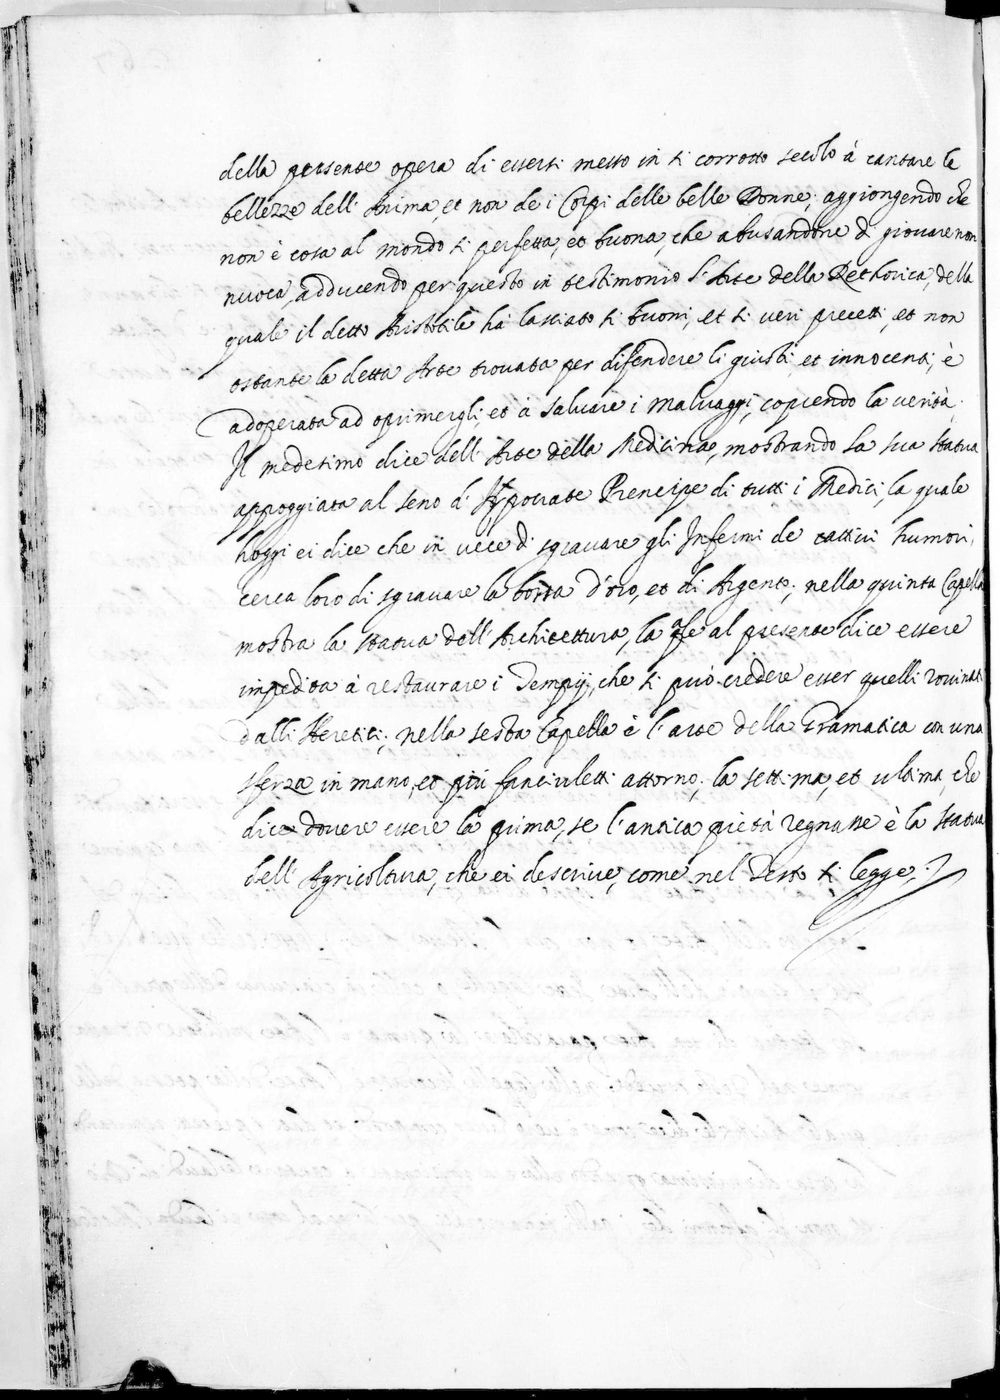 della presente opera di essersi messo in sì corrotto secolo à cantare le
bellezze dell' Anima, et non de i Corpi delle belle Donne; aggiongendo che
non è cosa al mondo sì perfetta, et buona, che abusandone di giovare non
nuoca, adducendo per questo in testimonio l' Arte della Rethorica, della
quale il detto Aristotile hà lasciato sì buoni, et sì veri precetti, et non
ostante la detta Arte trovata per difendere li giusti et innocenti, è
adoperata ad oprimergli, et à salvare i malvaggi, coprendo la verità.
Il medesimo dice dell' Arte della Medicina, mostrando la sua statua
appoggiata al seno d' Hyppocrate Prencipe di tutti i Medici, la quale
hoggi ei dice che in vece di sgravare gli Infermi de cattivi humori,
cerca loro di sgravare la borsa d'oro, et di Argento; nella quinta Capella
mostra la statua dell' Architettura, la qle al presente dice essere
impedita à restaurare i Tempij, che si può credere esser quelli rovinati
dalli Heretici; nella sesta Capella è l'arte della Gramatica con una
sferza in mano, et più fanciuletti attorno; la settima, et ultima, che
dice dovere essere la prima, se l'antica pietà regnasse è la statua
dell' Agricoltura, che ei descrive, come nel Testo si legge.